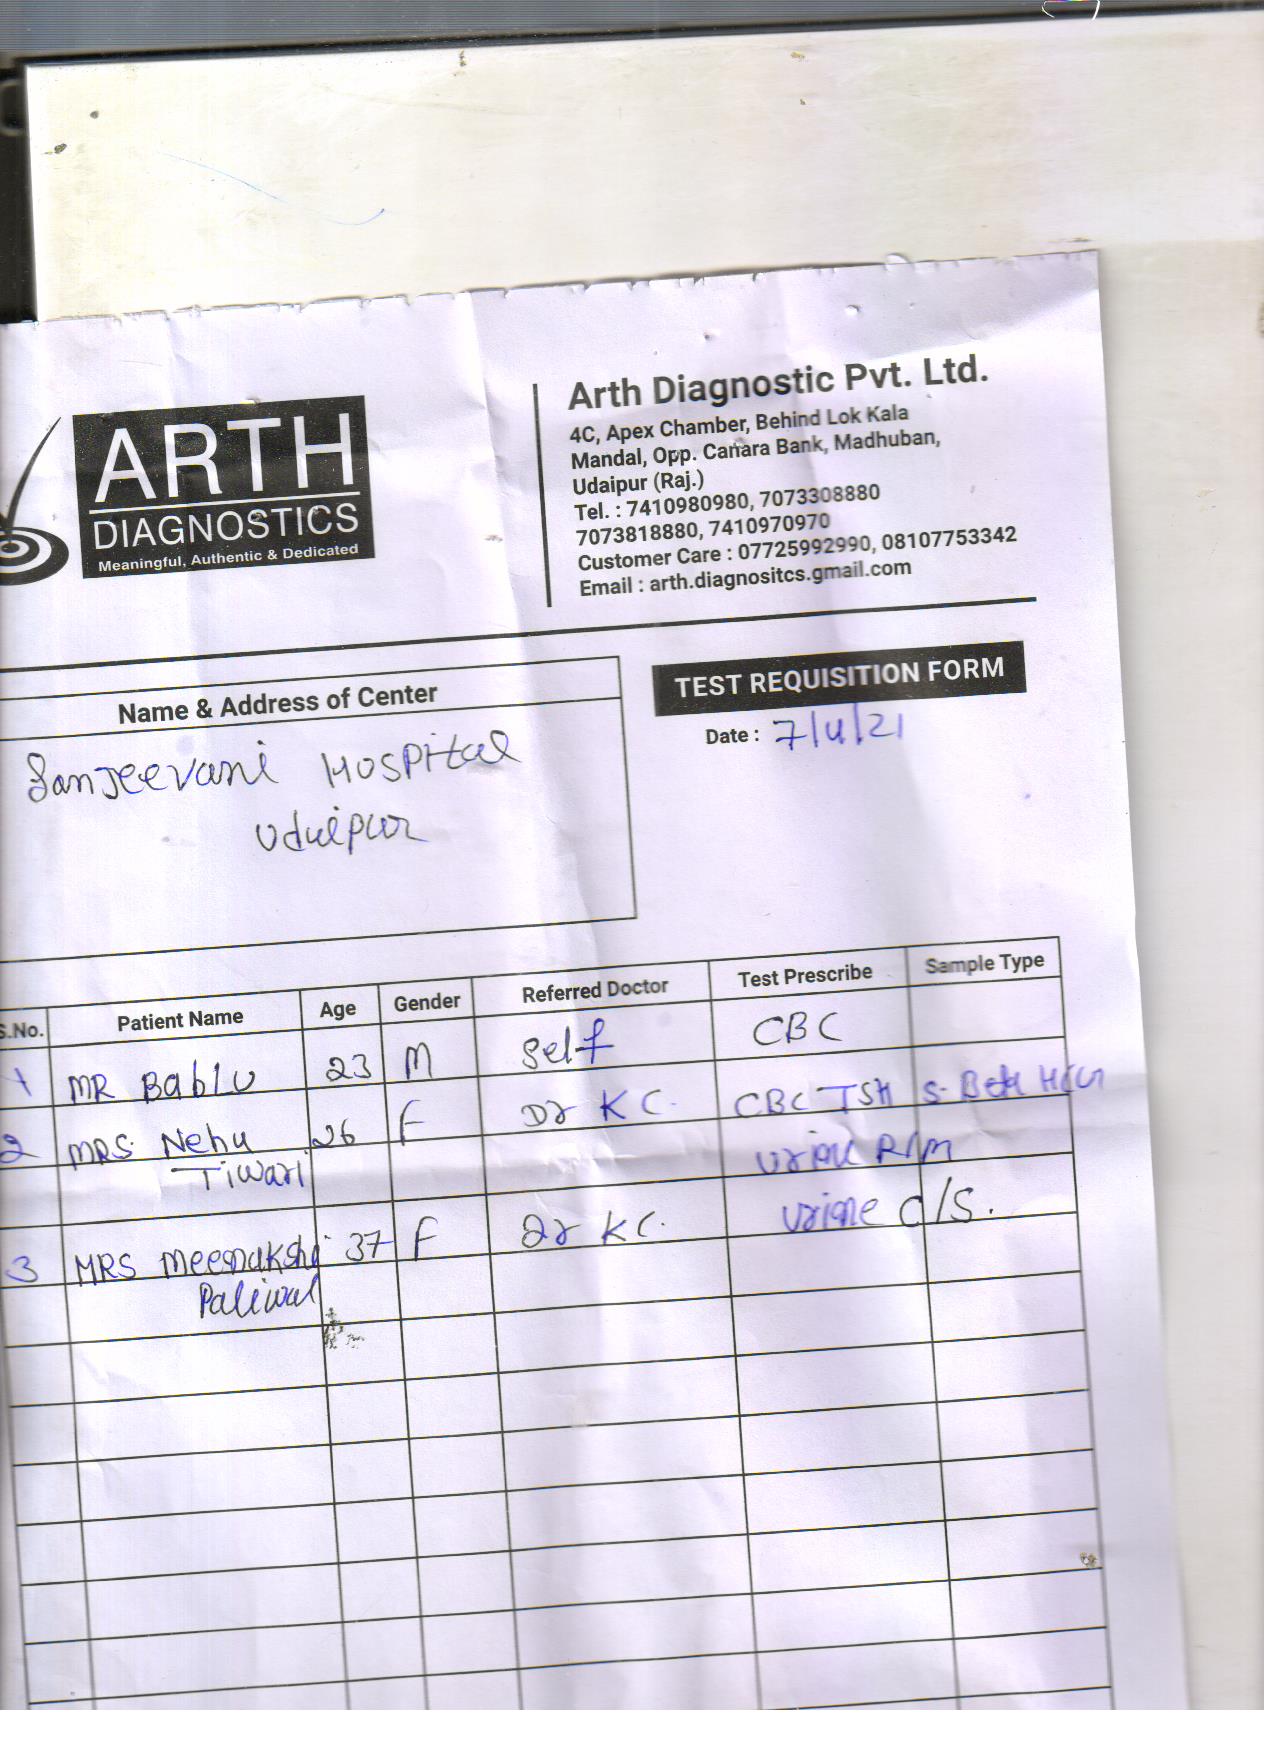 ARTH
DIAGNOSTICS
Meaningful, Authentic & Dedicated
Arth Diagnostic Pvt. Ltd.
4C, Apex Chamber, Behind Lok Kala
Mandal, Opp. Canara Bank, Madhuban,
Udaipur (Raj.)
Tel. : 7410980980, 7073308880
7073818880, 7410970970
Customer Care : 07725992990, 08107753342
Email : arth.diagnositcs.gmail.com
Name & Address of Center
Sanjeevani Hospital
Udaipur
TEST REQUISITION FORM
Date : 7/4/21
S.No. Patient Name Age Gender Referred Doctor Test Prescribe Sample Type
1 MR Bablu 23 M Self CBC
2 MRS. Nehu 26 F Dr KC. CBC TSH S. Beta HCG
Tiwari Urine R/M
3 MRS Meenakshi 37 F Dr KC. Urine C/S.
Paliwal